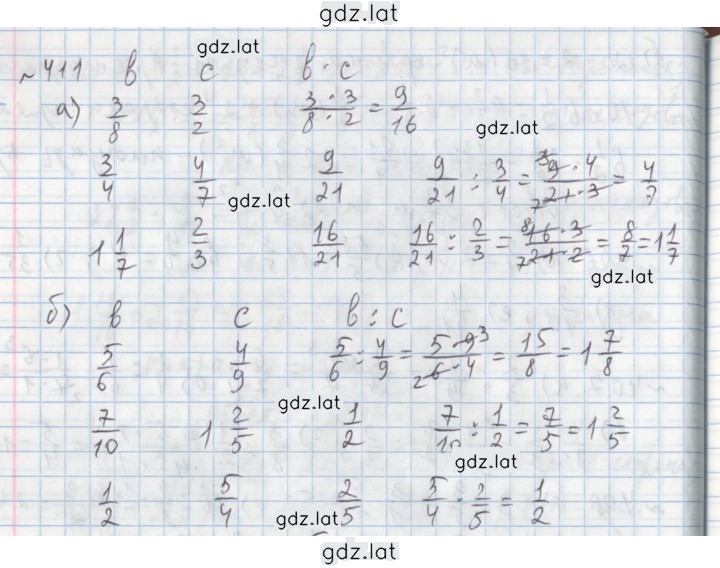 gdz.lat
gdz.lat
№411 в с в · с
а) 3/8 3/2 3·3/8·2 = 9/16
gdz.lat
3/4 4/7 9/21 9/21 : 3/4 = 3 9·4/7 21·3 = 4/7
gdz.lat
1 1/7 2/3 16/21 16/21 : 2/3 = 8 16·3/7 21·2 = 8/7 = 1 1/7
gdz.lat
б) в с в : с
5/6 4/9 5/6 : 4/9 = 5·9 3/2 6·4 = 15/8 = 1 7/8
gdz.lat
7/10 1 2/5 1/2 7/10 : 1/2 = 7/5 = 1 2/5
gdz.lat
1/2 5/4 2/5 5/4 · 2/5 = 1/2
gdz.lat
gdz.lat